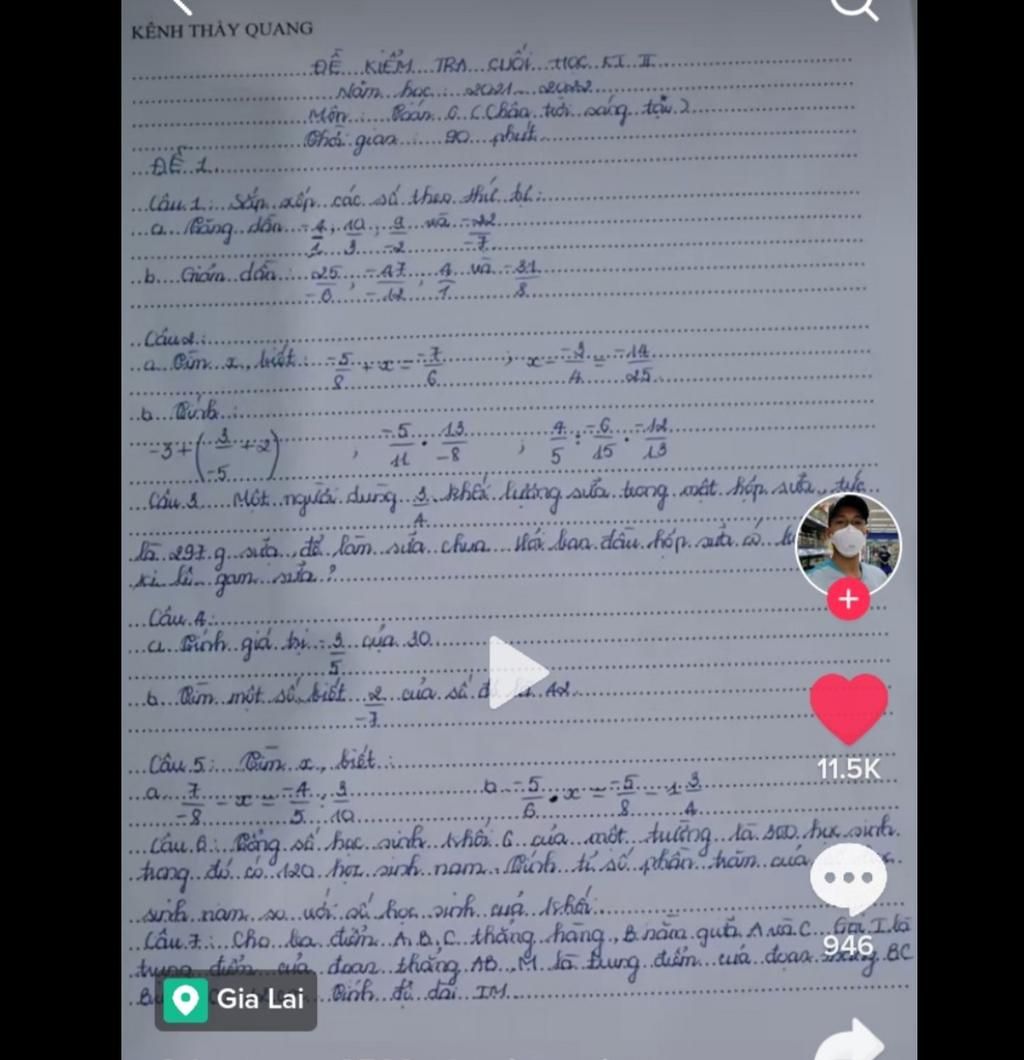 KÊNH THẦY QUANG
ĐỀ KIỂM TRA CUỐI HỌC KÌ II
Năm học: 2021 - 2022
Môn: Toán 6 (Chân trời sáng tạo)
Thời gian: 90 phút
ĐỀ 1
Câu 1: Sắp xếp các số theo thứ tự:
a. Tăng dần: -4/1, 10/3, 9/-2 và -22/-7
b. Giảm dần: 25/-6, -47/-12, 4/1 và -31/8
Câu 2:
a. Tìm x, biết: -5/8 + x = -7/6 ; x - -3/4 = -14/25
b. Tính:
-3 + (3/-5 + 2) ; -5/11 . 13/-8 ; 4/5 : -6/15 . -12/13
Câu 3. Một người dùng 3/4 khối lượng sữa trong một hộp sữa, tức
là 297 g sữa, để làm sữa chua. Hỏi ban đầu hộp sữa có
ki lô gam sữa?
Câu 4:
a. Tính giá trị -3/5 của 30
b. Tìm một số biết 2/-7 của số đó là 42
Câu 5: Tìm x, biết:
a. 7/-8 - x = -4/5 : 3/10 ; b. -5/6 . x = -5/8 - 1 3/4
Câu 6: Tổng số học sinh khối 6 của một trường là 300 học sinh
trong đó có 120 học sinh nam. Tính tỉ số phần trăm của
sinh nam so với số học sinh cuả khối.
Câu 7: Cho ba điểm A, B, C thẳng hàng, B nằm giữa A và C. Gọi I là
trung điểm của đoạn thẳng AB, M là trung điểm của đoạn thẳng BC
Tính độ dài IM
11.5K
946
Gia Lai